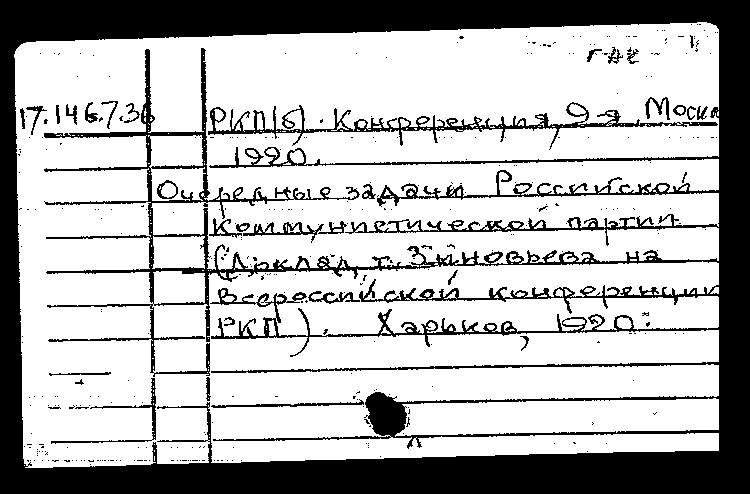 17.146.7.36 РКП(б). Конференция, 9-я, Москв
1920.
Очередные задачи Российской
Коммунистической партии
(Доклад т. Зиновьева на
Всероссийской конференции
РКП). Харьков, 1920.